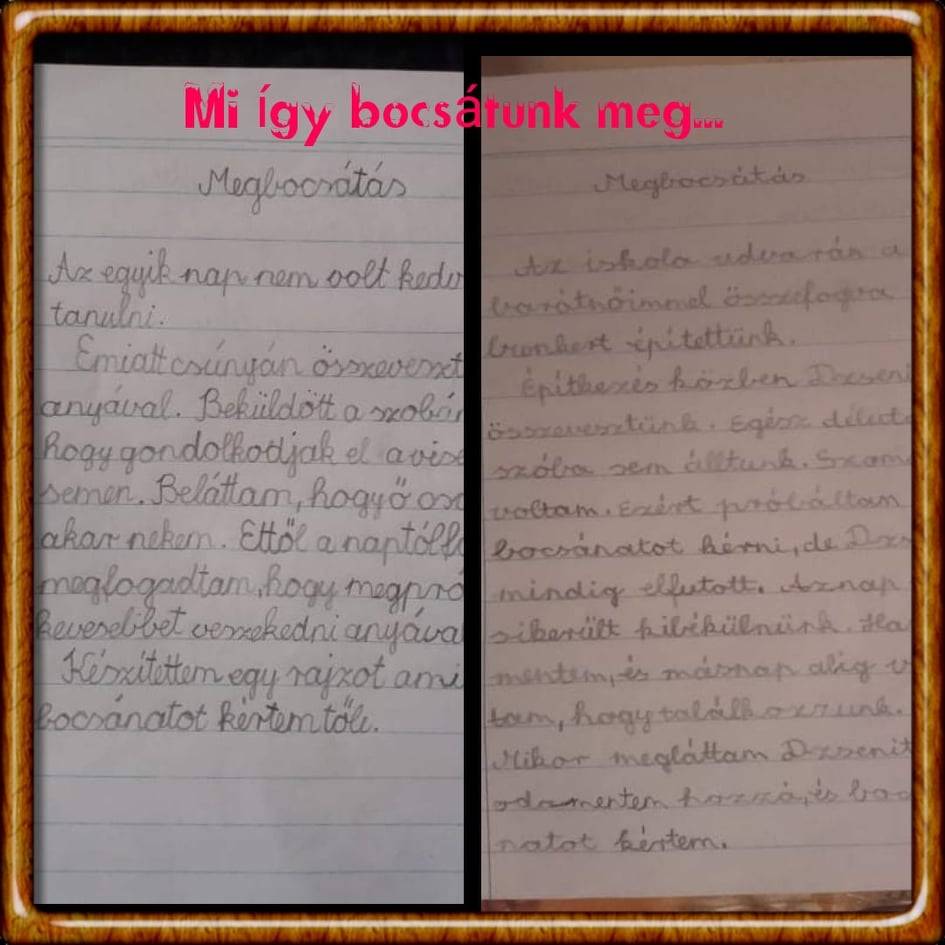 Mi így bocsátunk meg...
Megbocsátás
Az egyik nap nem volt kedv
tanulni.
Emiatt csúnyán összeveszt
anyával. Beküldött a szobám
hogy gondolkodjak el a vise
semen. Beláttam, hogy ő csa
akar nekem. Ettől a naptól fo
megfogadtam, hogy megpró
kevesebbet veszekedni anyával
Készítettem egy rajzot ami
bocsánatot kértem tőle.
Megbocsátás
Az iskola udvarán a
barátnőimmel összefogva
bunkert építettünk.
Építkezés közben Dzseni
összevesztünk. Egész délut
szóba sem álltunk. Szom
voltam. Ezért próbáltam
bocsánatot kérni, de Dzs
mindig elfutott. Aznap
sikerült kibékülnünk. Ha
mentem, és másnap alig v
tam, hogy találkozzunk.
Mikor megláttam Dzsenit
oda mentem hozzá, és boc
natot kértem.